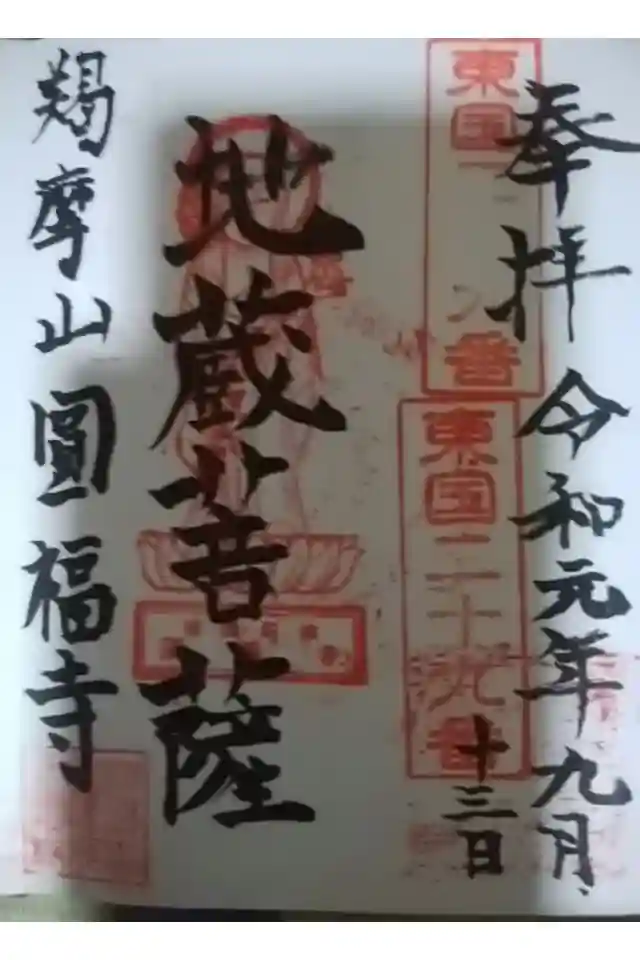 奉拝 令和元年九月
十三日
東国
番
東国二十九番
地蔵菩薩
羯摩山圓福寺